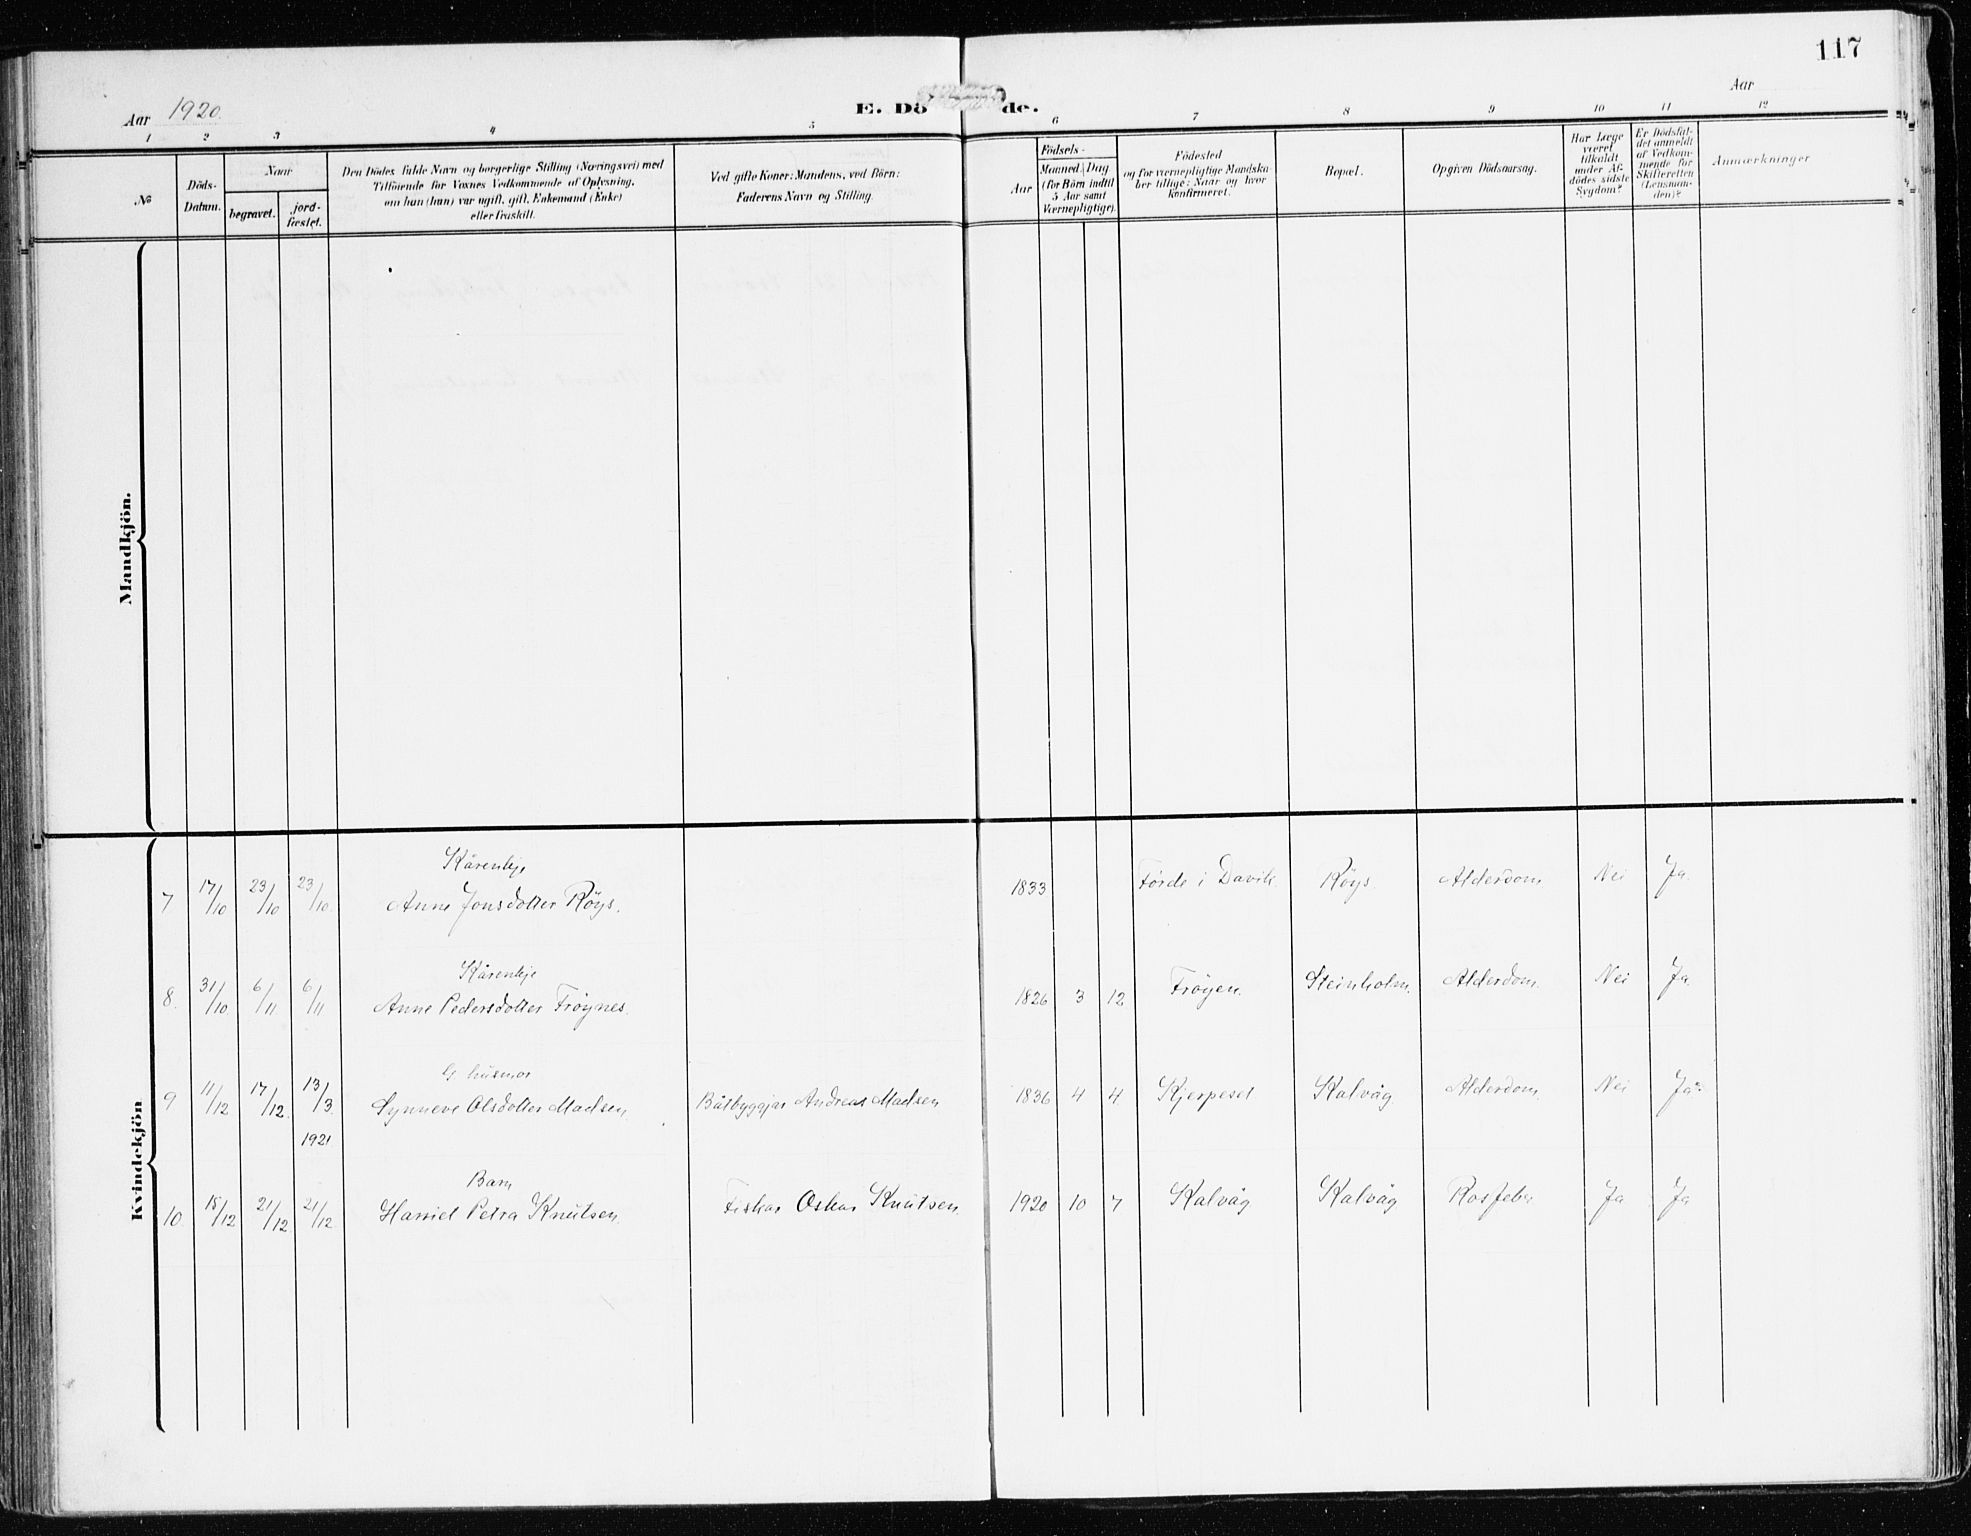 117
Aar 1920.
E. Dö
de.
Aar
1 2 3 4 5 6 7 8 9 10 11 12
No
Döds-
Datum.
Naar
begravet.
jord-
fæstet.
Den Dödes fulde Navn og borgerlige Stilling (Næringsvei) med
Tilföiende for Voxnes Vedkommende af Oplysning,
om han (hun) var ugift, gift, Enkemand (Enke)
eller fraskilt.
Ved gifte Koner: Mandens, ved Börn:
Faderens Navn og Stilling.
Födsels-
Aar
Maaned. Dag
(for Börn indtil
5 Aar samt
Værnepligtige).
Födested
og for værnepligtige Mandska-
ber tillige: Naar og hvor
konfirmeret.
Bopæl.
Opgiven Dödsaarsag.
Har Læge
været
tilkaldt
under Af-
dödes sidste
Sygdom?
Er Dödsfal-
det anmeldt
af Vedkom-
mende for
Skifteretten
(Lensman-
den)?
Anmærkninger
Mandkjön.
Kvindekjön
Kårenkje
7 17/10 23/10 23/10 Anne Jonsdotter Röys. 1833 Förde i Davik. Röys. Alderdom Nei Ja.
Kårenkje
8. 31/10 6/11 6/11 Anne Pedersdotter Fröynes. 1826 3 12 Fröyen. Steinholm. Alderdom. Nei Ja.
G. husmor
9 11/12 17/12. 13/3. Synneve Olsdotter Madsen. Båtbyggjar Andreas Madsen 1836 4 4 Kjerpeset Kalvåg. Alderdom. Nei Ja
1921
Barn
10. 15/12 21/12 21/12 Harriet Petra Knutsen. Fiskar Oskar Knutsen. 1920 10 7 Kalvåg. Kalvåg Rosfeber Ja Ja